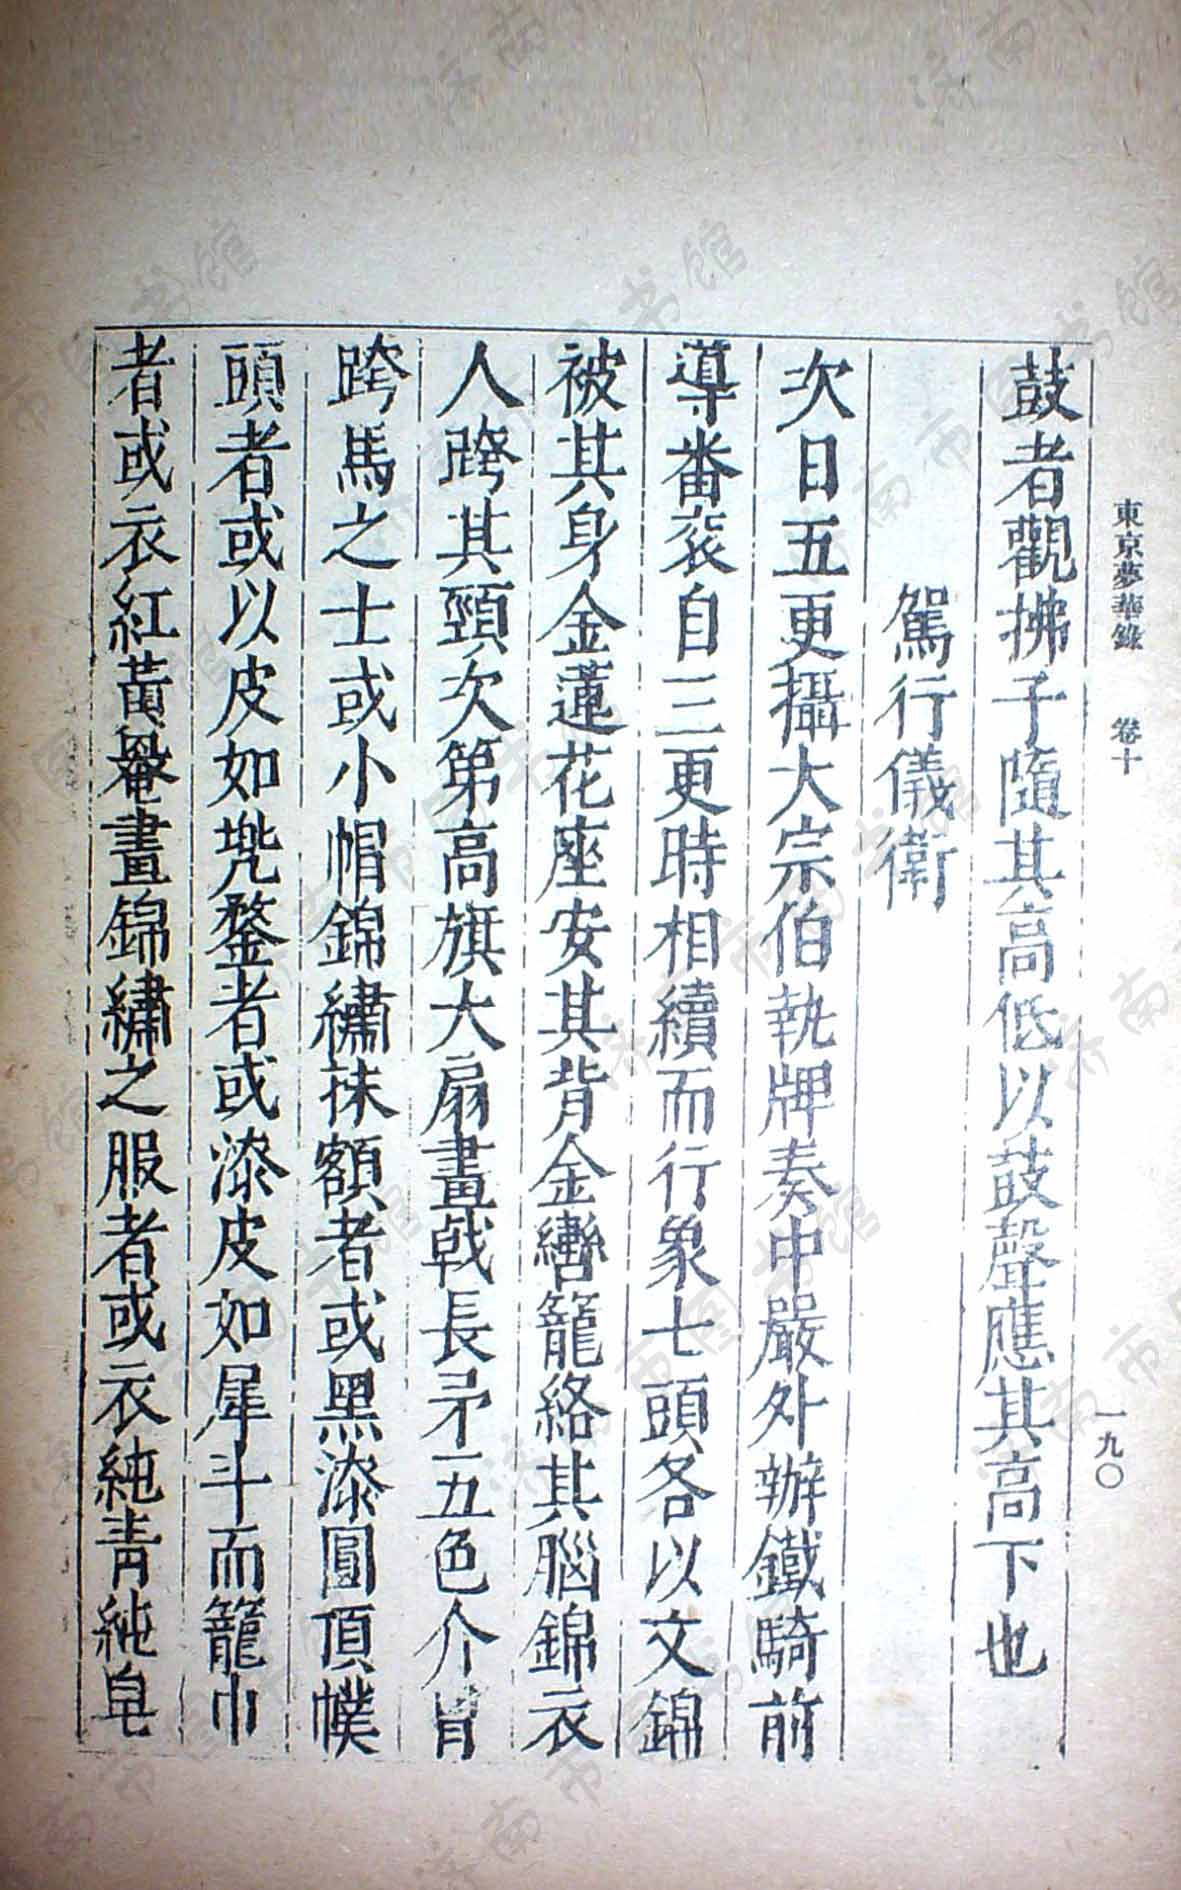 東京夢華錄 卷十 一九〇
鼓者觀拂子隨其高低以鼓聲應其高下也
駕行儀衛
次日五更攝大宗伯執牌奏中嚴外辦鐵騎前
導番衮自三更時相續而行象七頭各以文錦
被其身金蓮花座安其背金轡籠絡其腦錦衣
人跨其頸次第高旗大扇畫戟長矛五色介胄
跨馬之士或小帽錦繡抹額者或黑漆圓頂幞
頭者或以皮如兠鍪者或漆皮如犀斗而籠巾
者或衣紅黃罨畫錦繡之服者或衣純青純皂
济南市图书馆